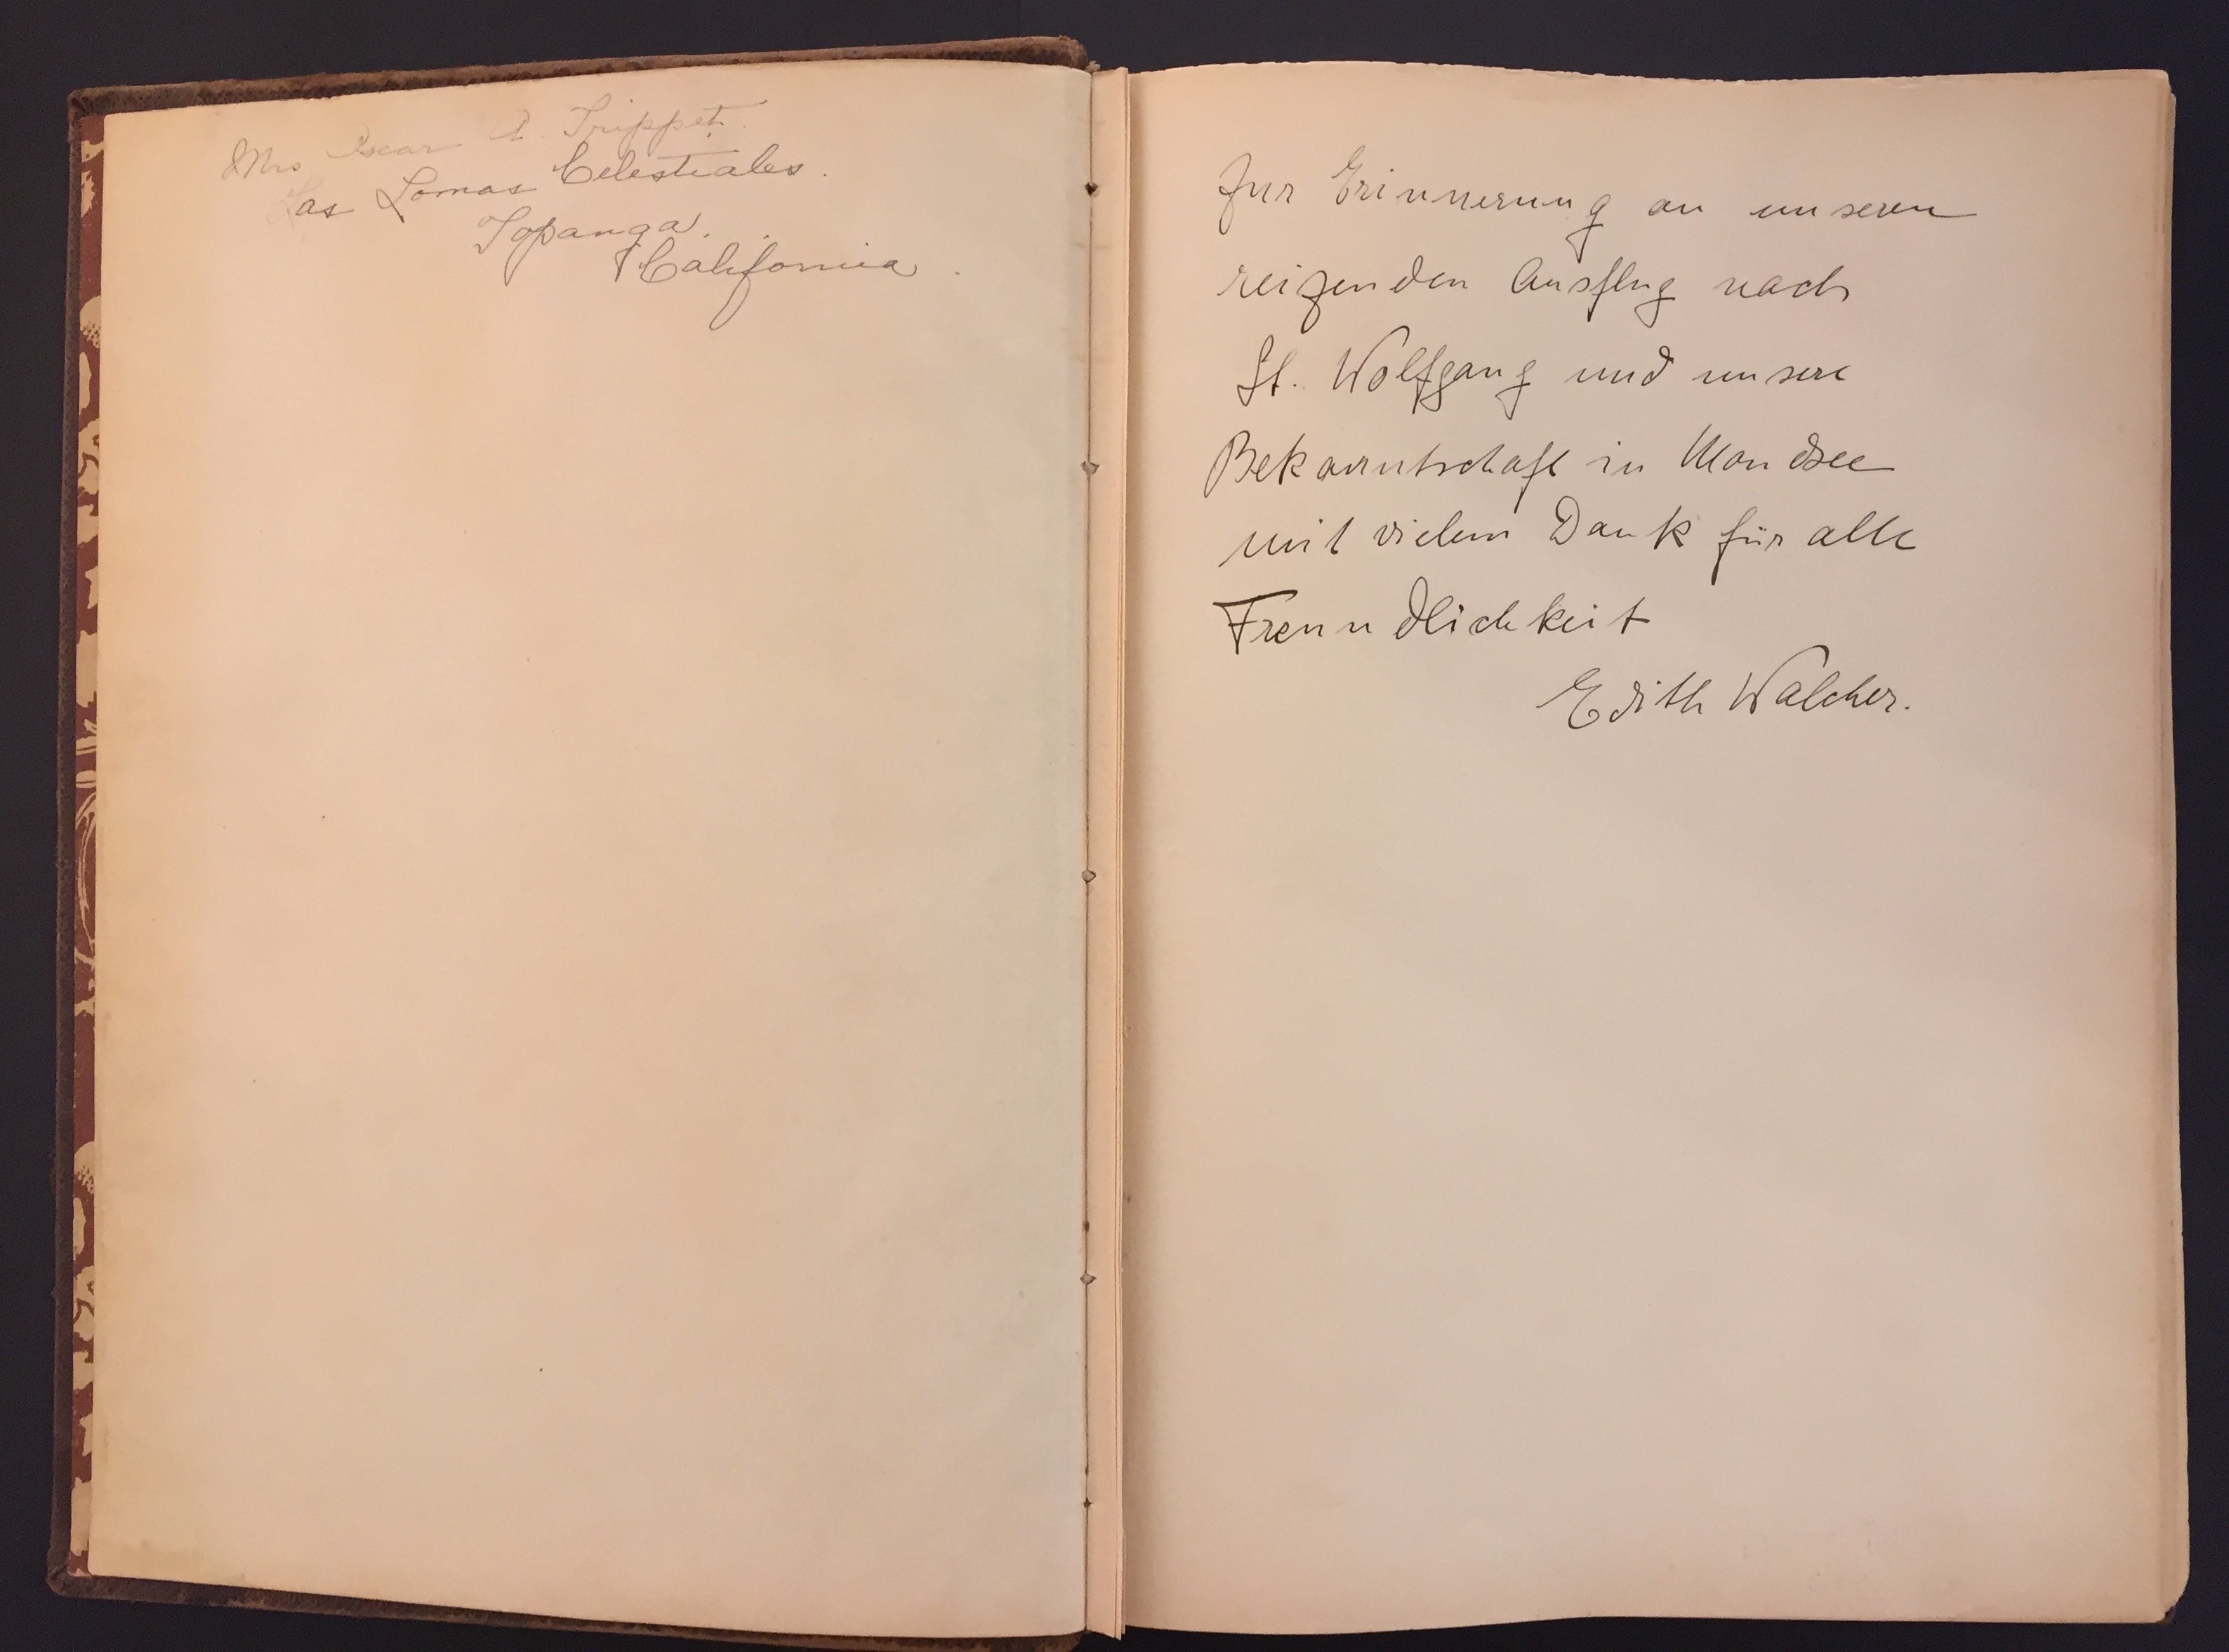 Mrs Oscar A. Trippet.
Las Lomas Celestiales.
Topanga.
California.
Zur Erinnerung an unseren
reizenden Ausflug nach
St. Wolfgang und unsere
Bekanntschaft in Mondsee
mit vielem Dank für alle
Freundlichkeit
Edith Walcher.